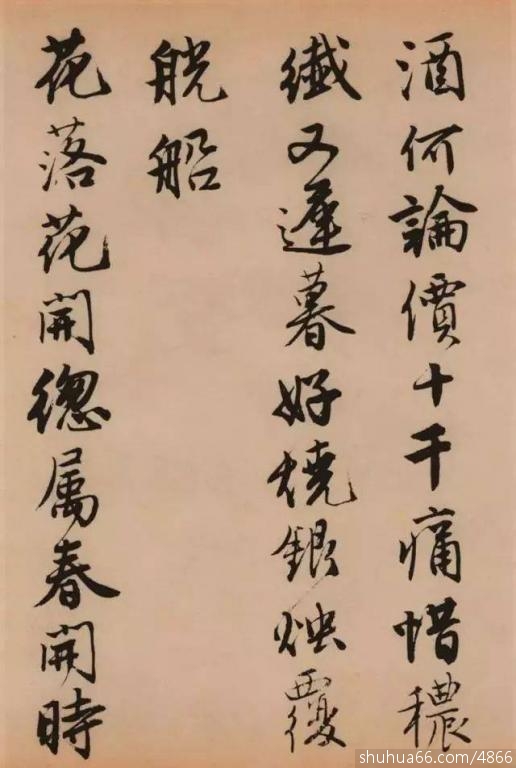 酒何論價十千痛惜穠
纖又遲暮好燒銀燭覆
觥船
花落花開總屬春開時
shuhua66.com/4866